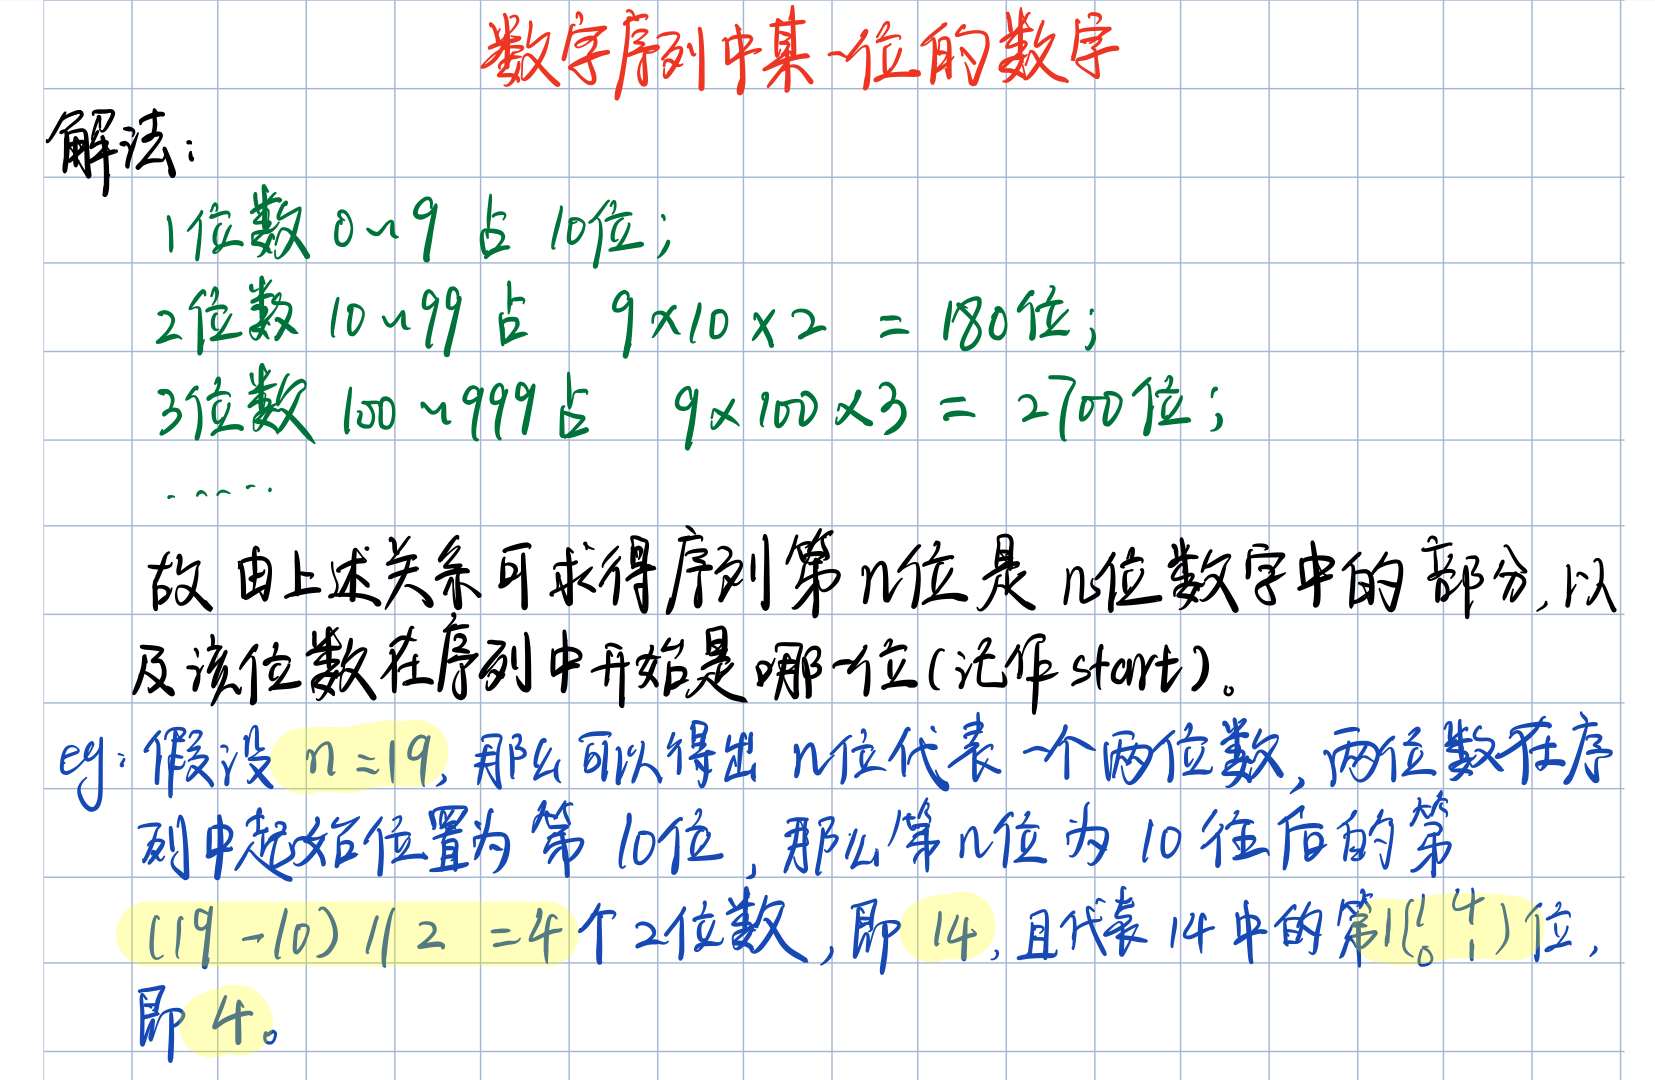 数字序列中某一位的数字
解法：
1位数 0~9 占 10位；
2位数 10~99 占 9×10×2 = 180位；
3位数 100~999占 9×100×3 = 2700位；
.....
故由上述关系可求得序列第n位是 n位数字中的部分，以
及该位数在序列中开始是哪一位（记作start）。
eg：假设 n=19，那么可以得出 n位代表一个两位数，两位数在序
列中起始位置为第 10位，那么第n位为 10 往后的第
(19-10)//2 =4个2位数，即 14，且代表14中的第1(1 4
0 1)位，
即 4。